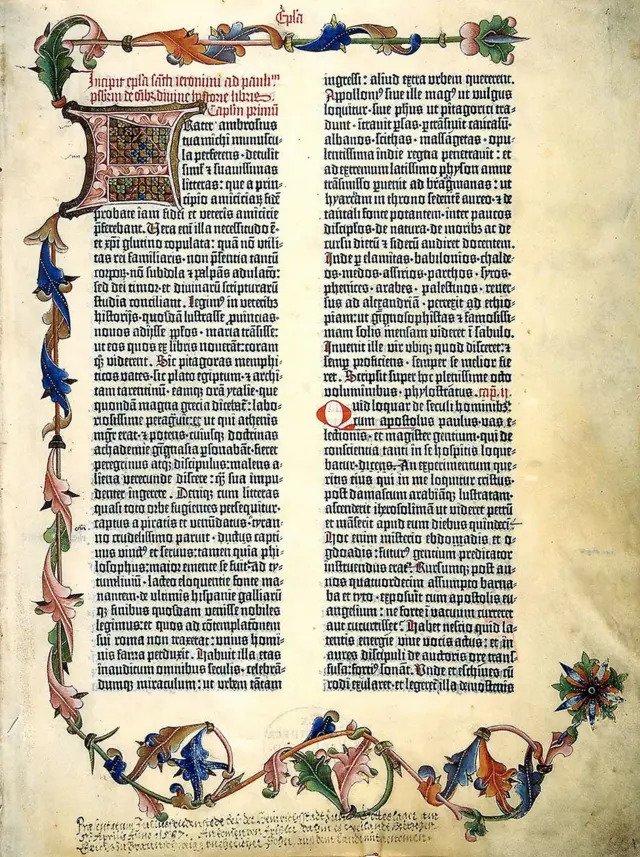 Ep̄la
Incipit ep̄la sc̄ti ieronimi ad paulinū
p̄sbiterū de om̄ibꝰ divine historie libris·
Capl̄m primū
Frater ambrosius
tua michi munuscu-
la perferens· detulit
siml̄ et suavissimas
litteras: que a prin-
cipio amiciciarū· fidē
probate iam fidei et veteris amicicie
p̄ferebant. Vera enī illa necessitudo ē·
et xp̄i glutino copulata: quam nō utili-
tas rei familiaris· non p̄sentia tantū
corporū· nō subdola et palpās adulacō·
sed dei timor· et divinarū scripturarū
studia conciliant. Legimꝰ in veteribꝰ
historijs· quosdā lustrasse ꝓvincias·
novos adijsse ppl̄os· maria trāsisse:
ut eos quos ex libris noverāt: coram
qꝫ viderent. Sic pitagoras memphi-
ticos vates· sic plato egiptum· et archi-
tam tarentinū· eamqꝫ orā ytalie· que
quondā magna grecia dicebat̄: labo-
riosissime peragravit: ut qui athenis
mgr̄ erat et potens· cuiusqꝫ doctrinas
achademie gignasia ꝑsonabāt: fieret
peregrinus atqꝫ discipulus: malens a-
liena verecunde discere: qꝫ sua impu-
denter ingerere. Deniqꝫ cum litteras
quasi toto orbe fugientes persequitur·
captus a piratis et venūdatus· tyran-
no crudelissimo paruit· ductus capti-
vus vinctꝰ et servus: tamen quia phi-
losophus: maior emente se fuit. ad ty-
tumliviū· lacteo eloquentie fonte ma-
nantem· de ultimis hispanie galliarū
qꝫ finibus quosdam venisse nobiles
legimus: et quos ad cōtemplacōnem
sui roma non traxerat: unius homi-
nis fama perduxit. Habuit illa etas
inauditum omnibus seculis· celebrā-
dumqꝫ miraculum: ut urbem tātam
ingressi: aliud extra urbem quererent.
Apollonꝰ sive ille magꝰ ut vulgus
loquitur· sive ph̄us ut pitagorici tra-
dunt· itravit p̄sas· ꝑtrāsivit caucasū·
albanos· scithas· massagetas· opu-
lentissima indie regna penetravit: et
ad extremum latissimo physon amne
trāsmisso ꝑvenit ad bragmanas: ut
hyarcam in throno sedentē aureo· et de
tantali fonte potantem· inter paucos
discipl̄os· de natura· de moribꝰ ac de
cursu dierū et siderū audiret docentem.
Inde ꝑ elamitas· babilonios· chalde-
os· medos· assirios· parthos· syros·
phenices· arabes· palestinos· rever-
sus ad alexandriā· perrexit ad ethio-
piam: ut gignosophistas et famosissi-
mam solis mensam videret ī sabulo.
Invenit ille vir ubiqꝫ quod disceret: et
semꝑ proficiens· semper se melior fie-
ret. Scripsit super hoc plenissime octo
voluminibus· phylostratus. cap̄. ij.
Quid loquar de seculi hominibꝰ·
cum apostolus paulus· vas e-
lectionis· et magister gentium· qui de
conscientia tanti in se hospitis loque-
batur· dicens. An experimentum que-
ritis eius qui in me loquitur cristus·
post damascum arabiāqꝫ lustratam·
ascenderit iherosolimā ut videret petrū
et māserit apud eum diebus quindecī·
Hoc enim misterio ebdomadis et o-
gdoadis: futurꝰ gentium predicator
instruendus erat. Rursumqꝫ post an-
nos quatuordecim assumpto barna-
ba et tyto· exposuit cum apostolis eu-
angelium: ne forte ī vacuum curreret
aut cucurrisset. Habet nescio quid la-
tentis energie vive vocis actus: et in
aures discipuli de auctoris ore trans-
fusa: fortiꝰ sonat. Unde et eschines cū
rodi exularet· et legeret̄ illa demostenis